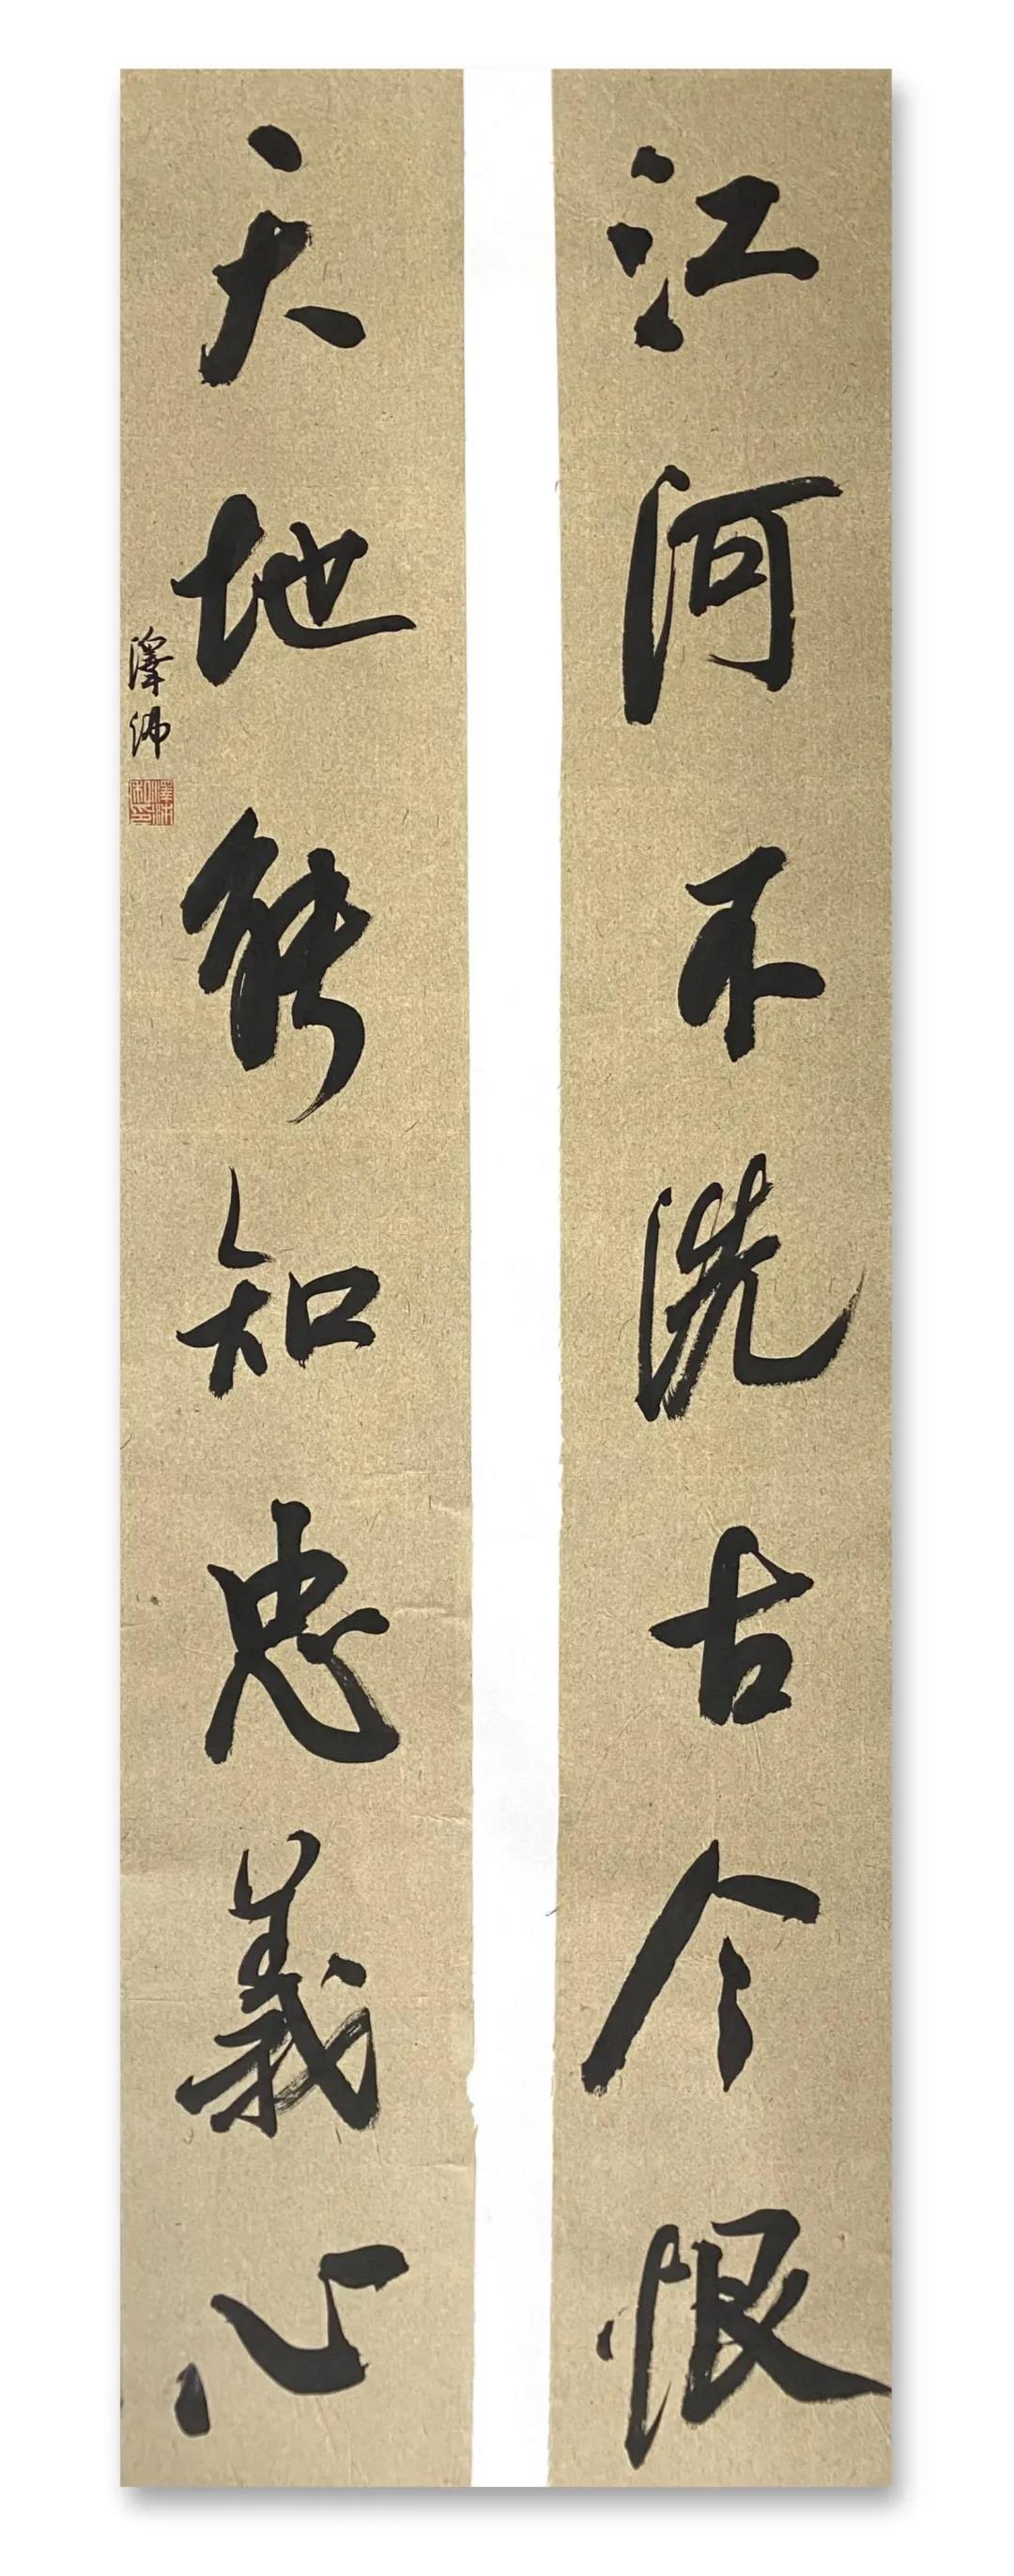 江河不洗古今恨
天地能知忠義心
澤沛